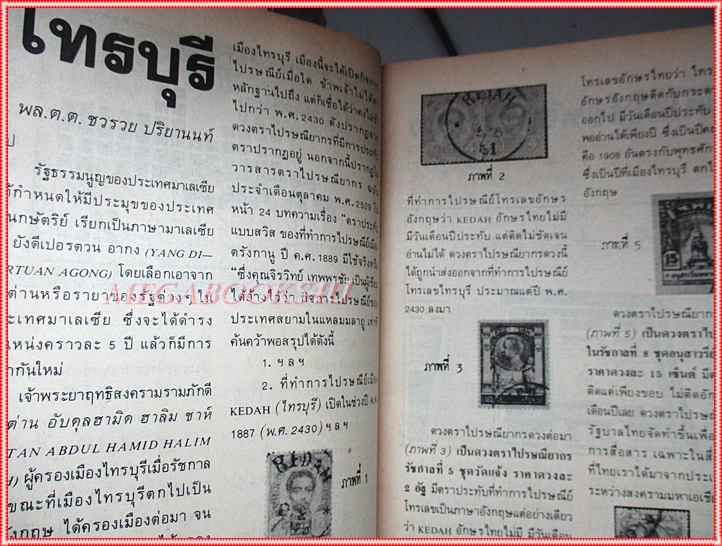 ไทรบุรี
พล.ต.ต. ชวรวย ปริยานนท์
รัฐธรรมนูญของประเทศมาเลเซีย
กำหนดให้มีประมุขของประเทศ
นกษัตริย์ เรียกเป็นภาษามาเลเซีย
ยังดีเปอรตวน อากง (YANG DI–
RTUAN AGONG) โดยเลือกเอาจาก
ต่านหรือรายาของรัฐต่างๆ ใน
ะเทศมาเลเซีย ซึ่งจะได้ดำรง
แหน่งคราวละ 5 ปี แล้วก็มีการ
ากันใหม่
เจ้าพระยาฤทธิสงครามรามภักดี
ต่าน อับดุลฮามิด ฮาลิม ชาห์
TAN ABDUL HAMID HALIM
H) ผู้ครองเมืองไทรบุรีเมื่อรัชกาล
ขณะที่เมืองไทรบุรีตกไปเป็น
ังกฤษ ได้ครองเมืองต่อมา จน
เมืองไทรบุรี เมืองนี้จะได้เปิดกิจการ
ไปรษณีย์เมื่อใด ข้าพเจ้าไม่ได้
หลักฐานไปถึง แต่ก็เชื่อได้ว่าคงไม่
ไปกว่า พ.ศ. 2430 ดังปรากฏจาก
ดวงตราไปรษณียากรที่มีการประทับ
ตราปรากฏอยู่ นอกจากนี้ปรากฏใน
วารสารตราไปรษณียากร ฉบับ
ประจำเดือนตุลาคม พ.ศ. 2529 ใน
หน้า 24 บทความเรื่อง "ตราประทับ
แบบสวิส ของที่ทำการไปรษณีย์เมือง
ตรังกานู ปี ค.ศ. 1889 มีใช้จริงหรือ
"ซึ่งคุณจิรวิทย์ เทพพรชัย เป็นผู้เขียน
ได้อ้างไว้ว่า กิจการไปรษณีย์ของ
ประเทศสยามในแหลมมลายู เท่าที่
ค้นคว้าพอสรุปได้ดังนี้
1. ฯลฯ
2. ที่ทำการไปรษณีย์เมือง
KEDAH (ไทรบุรี) เปิดในช่วงปี ค.ศ.
1887 (พ.ศ. 2430) ฯลฯ
KEDAH
ภาพที่ 1
MEGABOOKS4U
KEDAH
ภาพที่ 2
ที่ทำการไปรษณีย์โทรเลขอักษร
อังกฤษว่า KEDAH อักษรไทยไม่มี
มีวันเดือนปีประทับ แต่ติดไม่ชัดเจน
อ่านไม่ได้ ดวงตราไปรษณียากรดวงนี้
ได้ถูกนำส่งออกจากที่ทำการไปรษณีย์
โทรเลขไทรบุรี ประมาณแต่ปี พ.ศ.
2430 ลงมา
ภาพที่ 3
ดวงตราไปรษณียากรดวงต่อมา
(ภาพที่ 3) เป็นดวงตราไปรษณียากร
รัชกาลที่ 5 ชุดวัดแจ้ง ราคาดวงละ
2 อัฐ มีตราประทับที่ทำการไปรษณีย์
โทรเลขเป็นภาษาอังกฤษแต่อย่างเดียว
ว่า KEDAH อักษรไทยไม่มี มีวันเดือน
โทรเลขอักษรไทยว่า ไทร
อักษรอังกฤษติดกับกระดา
ออกไป มีวันเดือนปีประทับ
พออ่านได้เพียงปี ซึ่งเป็นปีค
คือ 1908 อันตรงกับพุทธศัก
ซึ่งเป็นปีที่เมืองไทรบุรี ตกไ
อังกฤษ
ภาพที่ 5
15
ดวงตราไปรษณีย
(ภาพที่ 5) เป็นดวงตราไป
ในรัชกาลที่ 8 ชุดอนุสาวรีย
ราคาดวงละ 15 เซ็นต์ มีตร
ติดแต่เพียงขอบ ไม่ติดอักษ
เดือนปีเลย ดวงตราไปรษณีย
รัฐบาลไทยจัดทำขึ้นเพื่อ
การสื่อสาร เฉพาะในสี่
ที่ไทยเราได้มาจากประเท
ระหว่างสงครามมหาเอเซีย